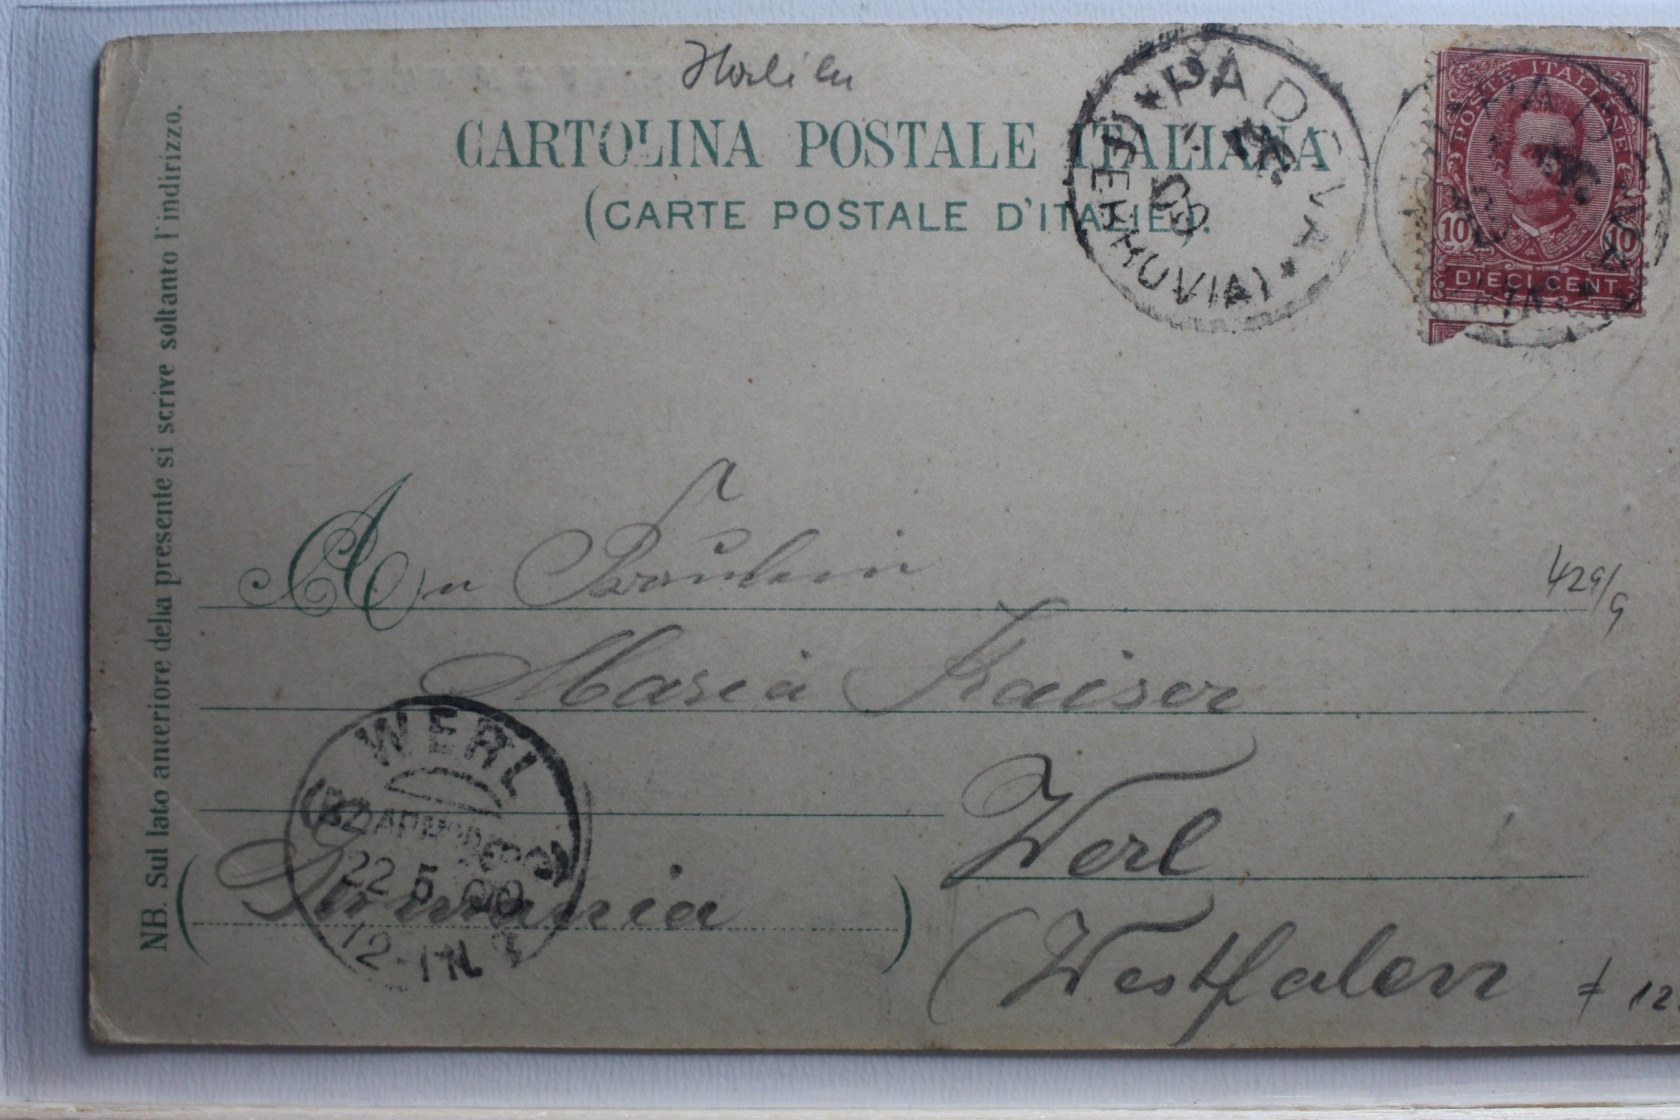 Italien
CARTOLINA POSTALE ITALIANA
(CARTE POSTALE D'ITALIE).
PADOVA
(FERROVIA)
POSTE ITALIANE
10 10
DIECI CENT.
NB. Sul lato anteriore della presente si scrive soltanto l'indirizzo.
An Fräulein
429/9
Maria Kaiser
Werl
(Germania)
(Westfalen
WERL
22 5 00
12-1 N.
12